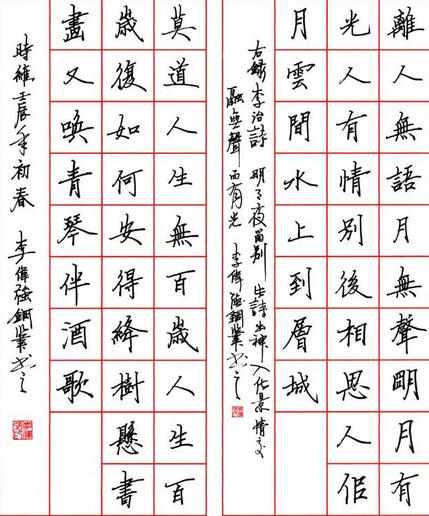 離人無語月無聲明月有
光人有情別後相思人佀
月雲間水上到層城
右録李治詩 明月夜留別 此詩出神入化景情交
融無聲而有光 李偉強鋼筆書之
莫道人生無百歲人生百
歲復如何安得絳樹懸書
畫又喚青琴伴酒歌
時維壬辰年初春 李偉強鋼筆書之